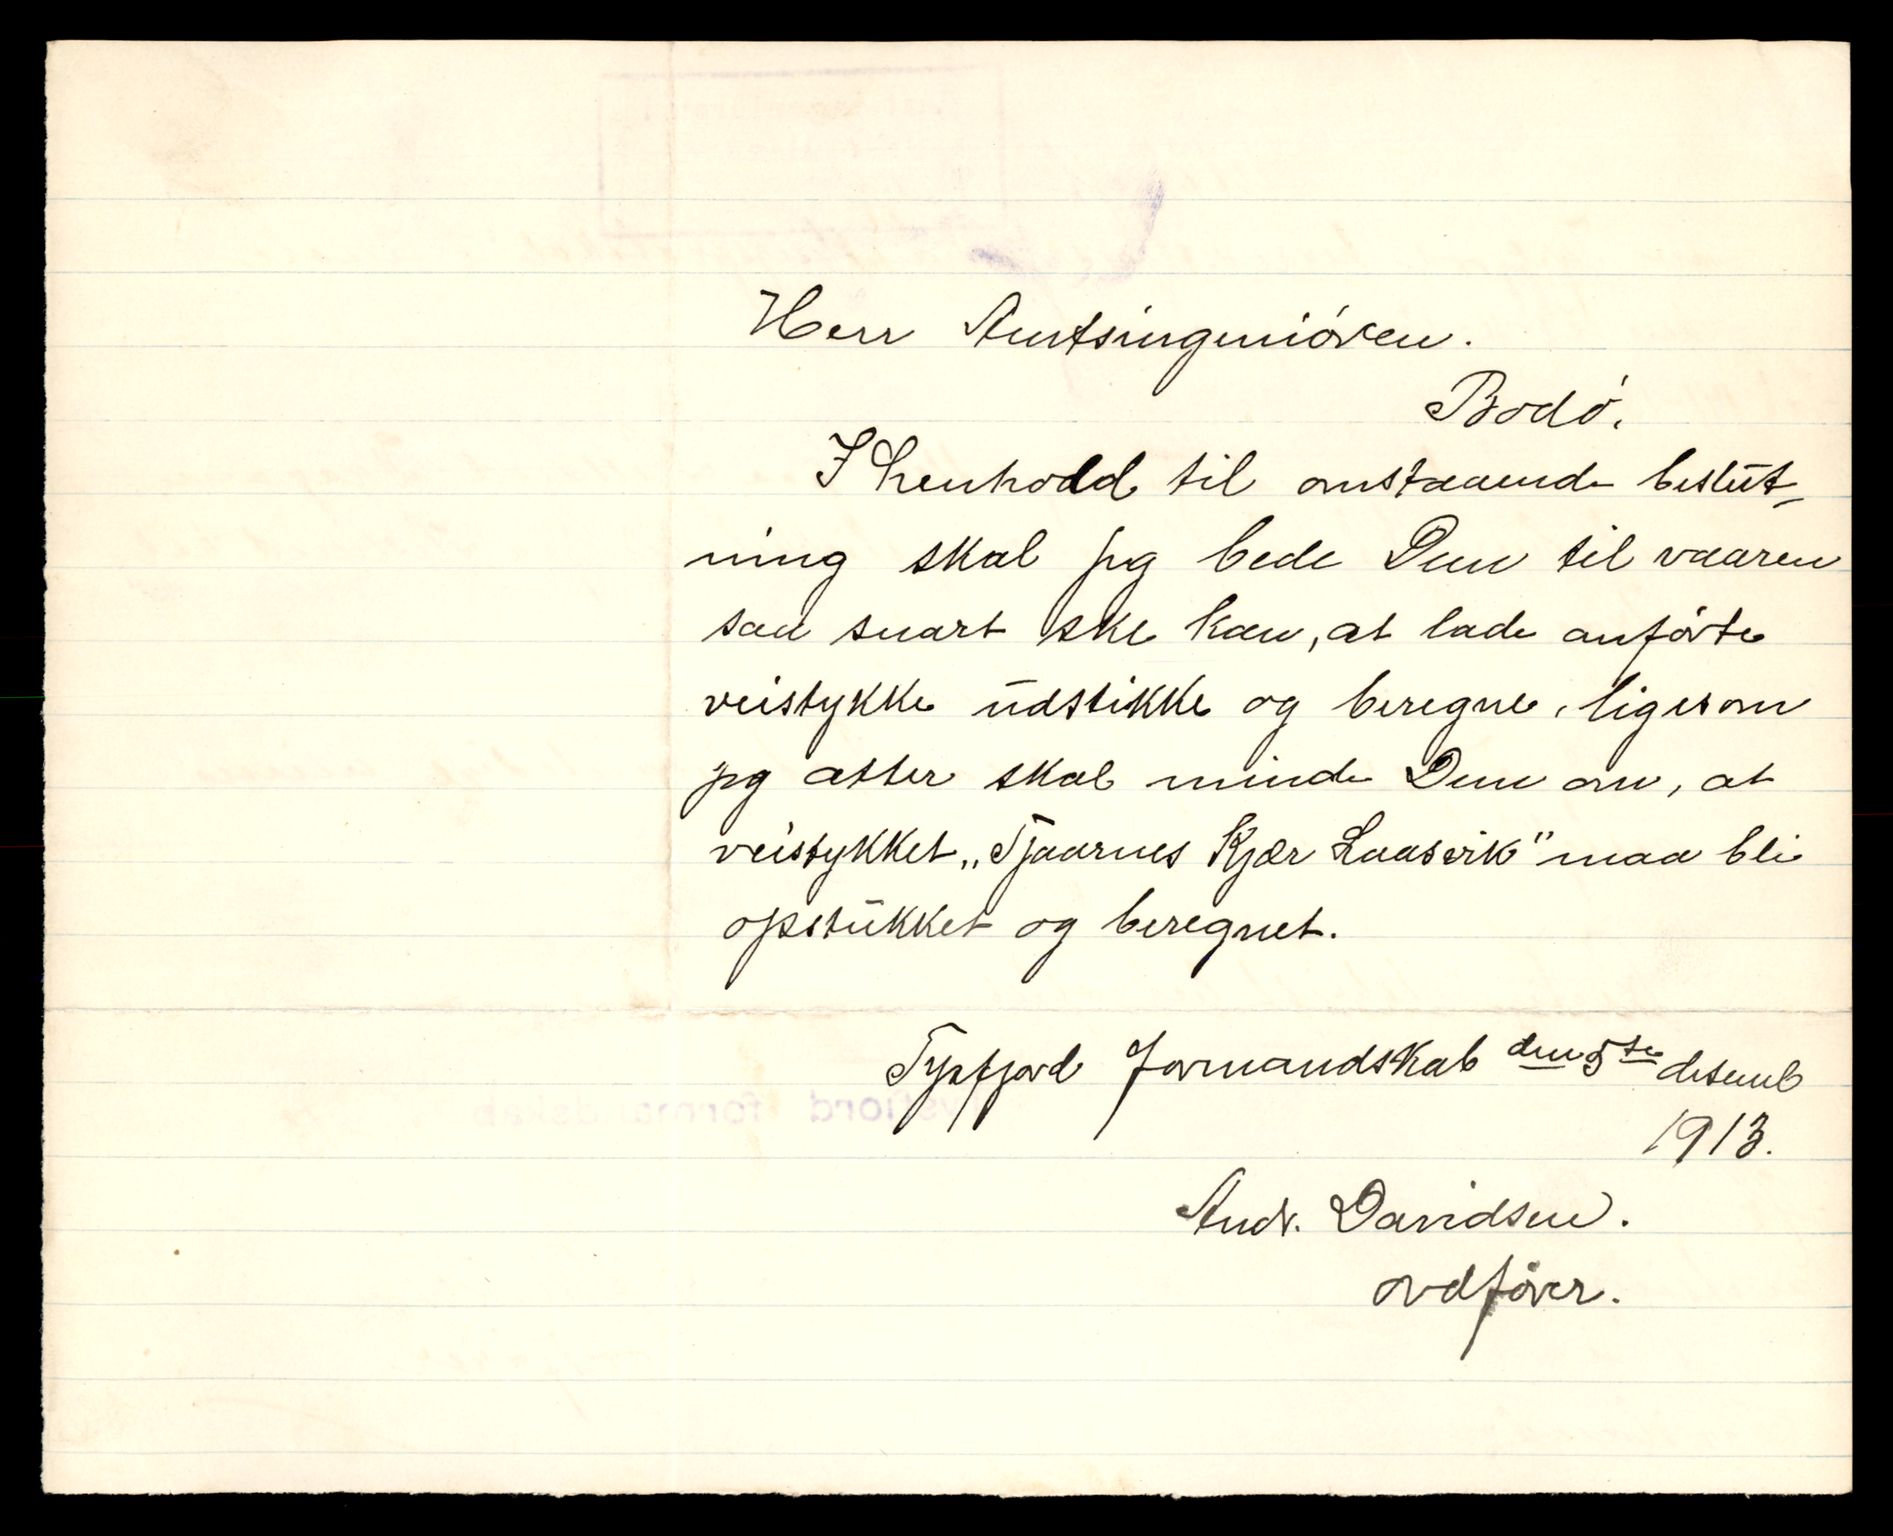 Herr Amtsingeniören.
Bodö.
I henhold til omstaaende beslut-
ning skal jeg bede Dem til vaaren
saa snart ske kan, at lade anförte
veistykke udstikke og beregne, ligesom
jeg atter skal minde Dem om, at
veistykket „Tjaarnes Kjær Laasvik" maa bli
opstukket og beregnet.
Tysfjord formandskab den 5te desemb
1913.
Andr. Davidsen.
ordförer.